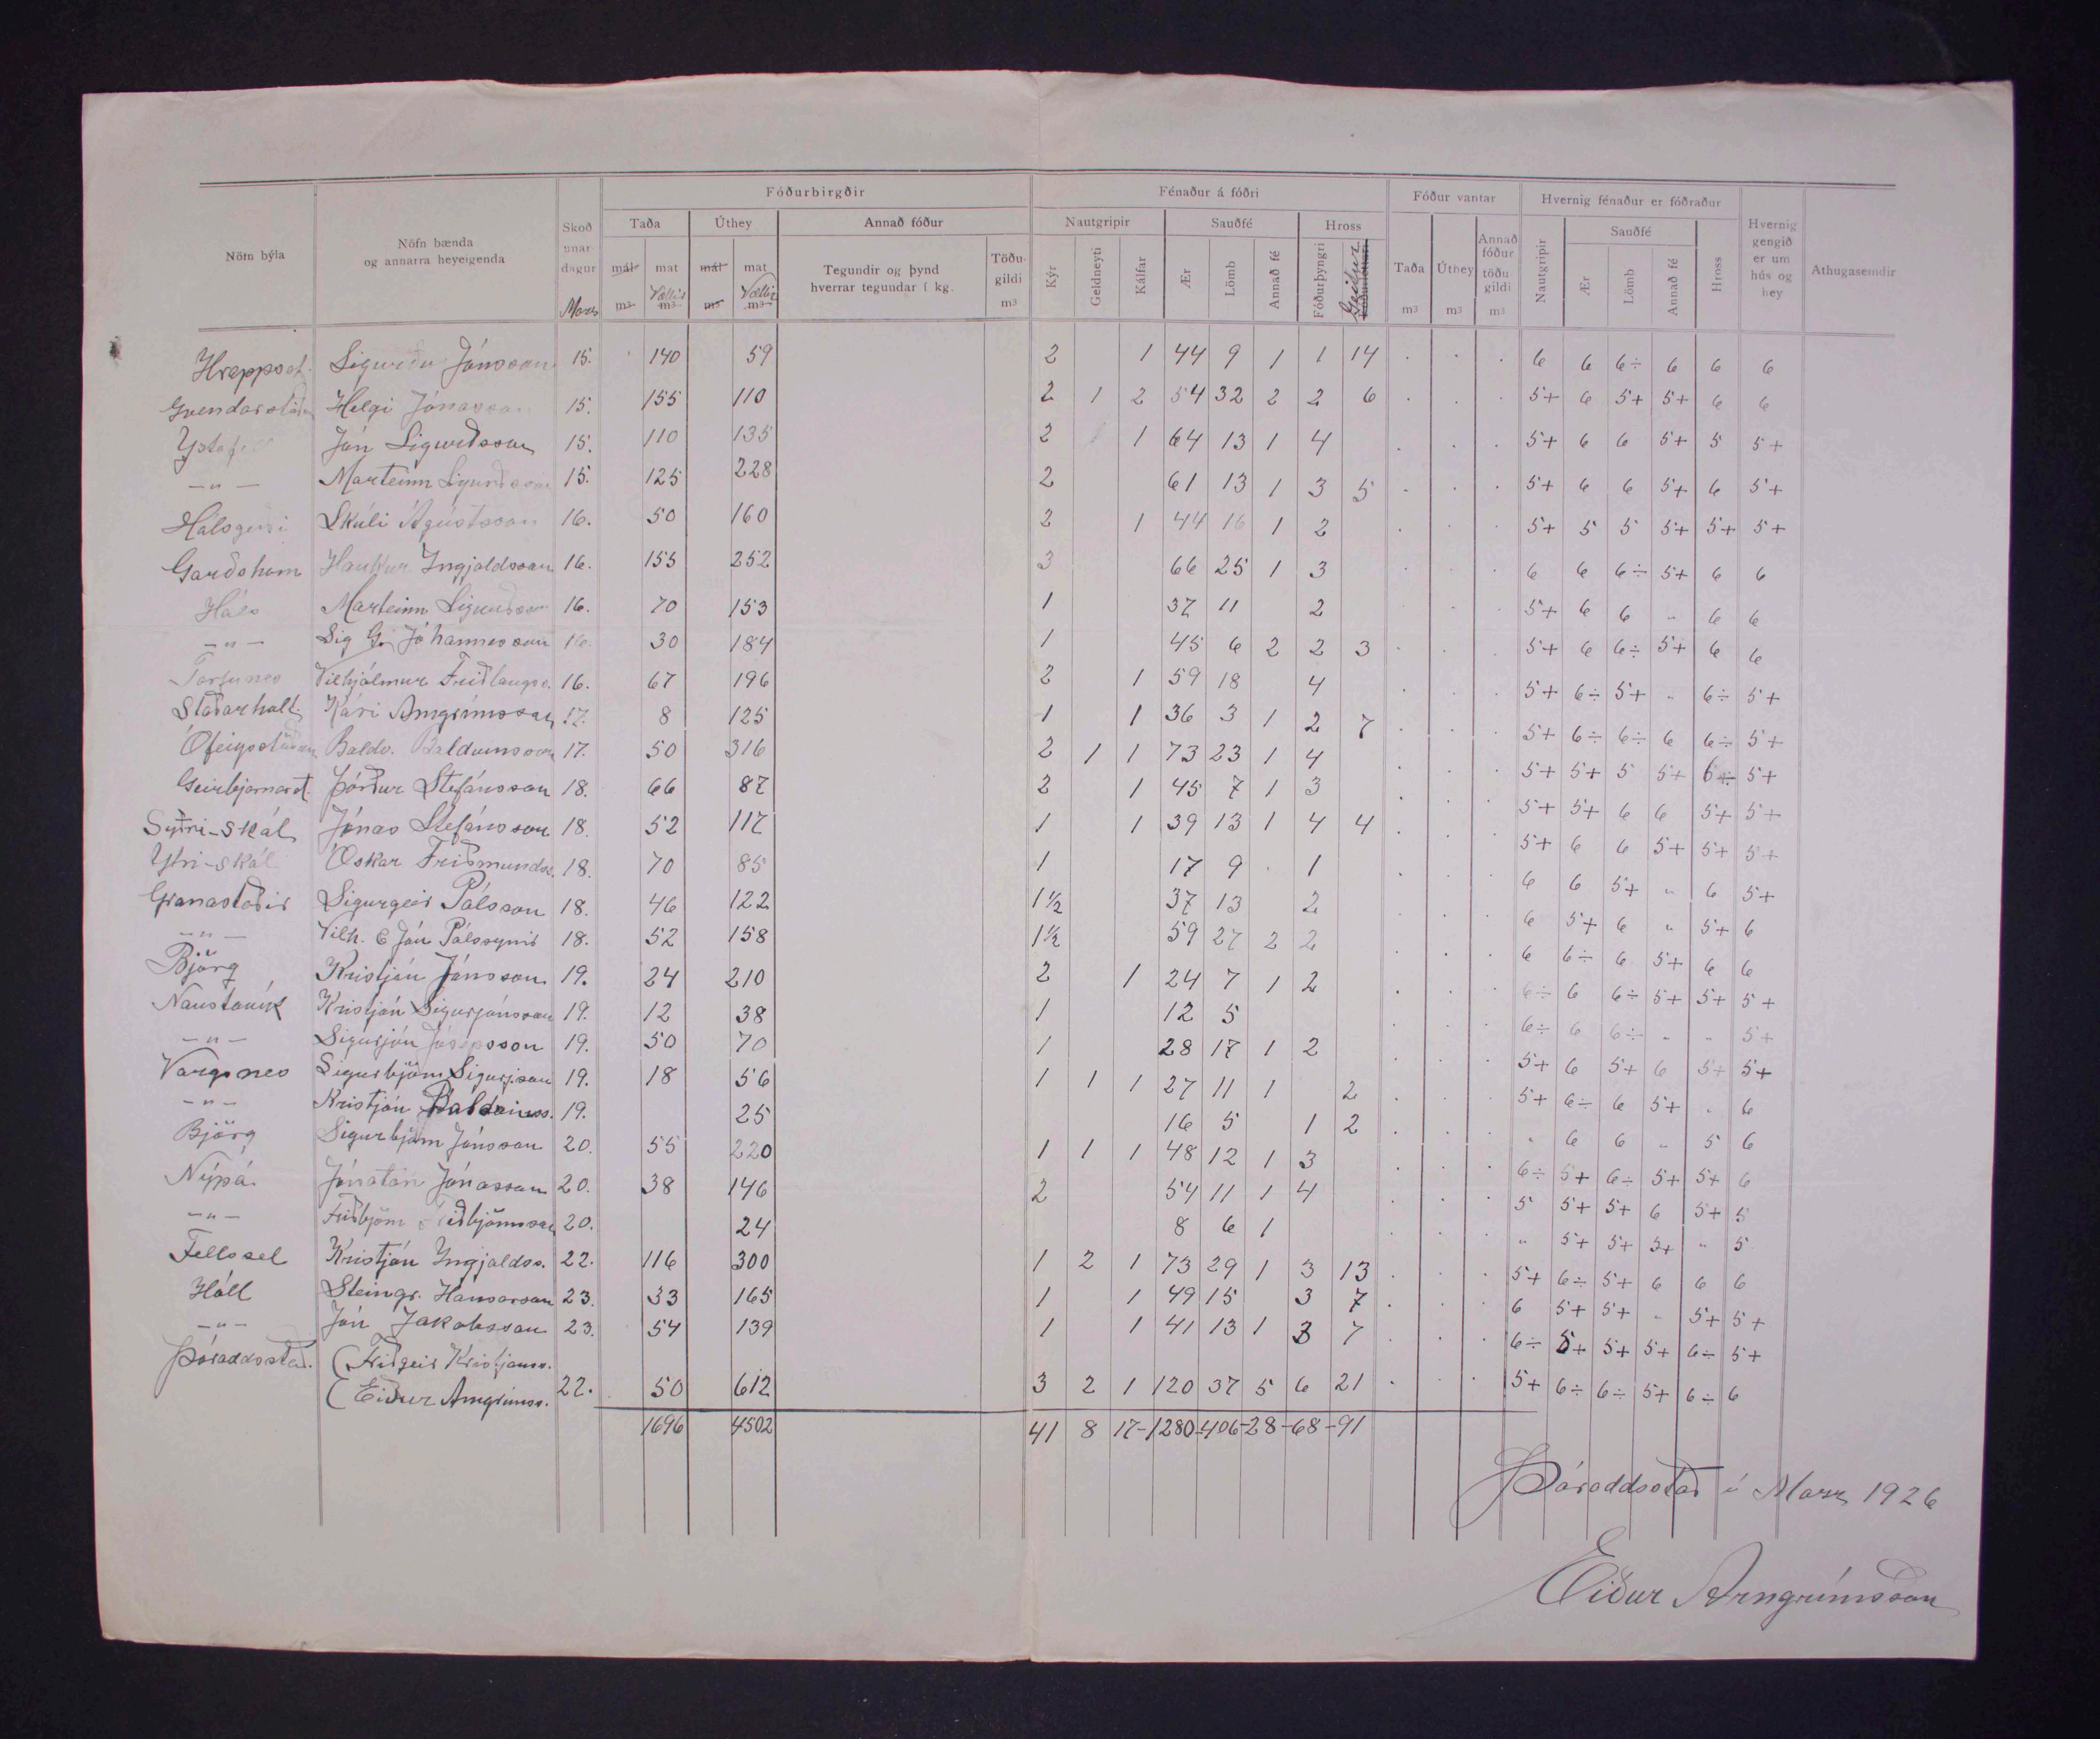 Fóðurbirgðir Fénaður á fóðri Fóður vantar Hvernig fénaður er fóðraður
Nöfn býla Nöfn bænda og annarra heyeigenda Skoðunardagur Marz Taða Úthey Annað fóður Nautgripir Sauðfé Hross Taða m3 Úthey m3 Annað fóður töðu gildi m3 Nautgripir Sauðfé Hross Hvernig gengið er um hús og hey Athugasemdir
mál m3 mat Vættir m3 mál m3 mat Vættir m3 Tegundir og þynd hverrar tegundar í kg. Töðugildi m3 Kýr Geldneyti Kálfar Ær Lömb Annað fé Fóðurþyngri Geitur Ær Lömb Annað fé
Hreppsst. Sigurður Jónsson 15. 140 59 2 1 44 9 1 1 14 . . . 6 6 6÷ 6 6 6
Gvendarstaðir Helgi Jónasson 15. 155 110 2 1 2 54 32 2 2 6 . . . 5+ 6 5+ 5+ 6 6
Ystafell Jón Sigurðsson 15. 110 135 2 1 64 13 1 4 . . . 5+ 6 6 5+ 5 5+
-"- Marteinn Sigurðsson 15. 125 228 2 61 13 1 3 5 . . . 5+ 6 6 5+ 6 5+
Hálsgerði Skúli Ágústsson 16. 50 160 2 1 44 16 1 2 . . . 5+ 5 5 5+ 5+ 5+
Garðshorn Haukur Ingjaldsson 16. 155 252 3 66 25 1 3 . . . 6 6 6÷ 5+ 6 6
Háls Marteinn Sigurðsson 16. 70 153 1 37 11 2 . . . 5+ 6 6 " 6 6
-"- Sig G. Jóhannesson 16. 30 184 1 45 6 2 2 3 . . . 5+ 6 6÷ 5+ 6 6
Torfunes Vilhjálmur Friðlaugss. 16. 67 196 2 1 59 18 4 . . . 5+ 6÷ 5+ " 6÷ 5+
Staðarholt Kári Arngrímsson 17. 8 125 1 1 36 3 1 2 7 . . . 5+ 6÷ 6÷ 6 6÷ 5+
Ófeigsstaðir Baldv. Baldvinsson 17. 50 316 2 1 1 73 23 1 4 . . . 5+ 5+ 5 5+ 6÷ 5+
Geirbjarnarst. Þórður Stefánsson 18. 66 87 2 1 45 7 1 3 . . . 5+ 5+ 6 6 5+ 5+
Syðri-Skál Jónas Stefánsson 18. 52 117 1 1 39 13 1 4 4 . . . 5+ 6 6 5+ 5+ 5+
Ytri-Skál Óskar Friðmundss. 18. 70 85 1 17 9 . 1 . . . 6 6 5+ " 6 5+
Granastaðir Sigurgeir Pálsson 18. 46 122 1½ 37 13 2 . . . 6 5+ 6 " 5+ 6
-"- Vilh. & Jón Pálssynir 18. 52 158 1½ 59 27 2 2 . . . 6 6÷ 6 5+ 6 6
Björg Kristján Jónsson 19. 24 210 2 1 24 7 1 2 . . . 6÷ 6 6÷ 5+ 5+ 5+
Naustavík Kristján Sigurjónsson 19. 12 38 1 12 5 . . . 6÷ 6 6÷ " " 5+
-"- Sigurjón Jósepsson 19. 50 70 1 28 17 1 2 . . . 5+ 6 5+ 6 5+ 5+
Vargsnes Sigurbjörn Sigurjsson 19. 18 56 1 1 1 27 11 1 2 . . . 5+ 6÷ 6 5+ " 6
-"- Kristján Baldvinss. 19. 25 16 5 1 2 . . . " 6 6 " 5 6
Björg Sigurbjörn Jónsson 20. 55 220 1 1 1 48 12 1 3 . . . 6÷ 5+ 6÷ 5+ 5+ 6
Nýpá Jónatan Jónasson 20. 38 146 2 54 11 1 4 . . . 5 5+ 5+ 6 5+ 5
-"- Friðbjörn Friðbjörnsson 20. 24 8 6 1 . . . " 5+ 5+ 5+ " 5
Fellssel Kristján Ingjaldss. 22. 116 300 1 2 1 73 29 1 3 13 . . . 5+ 6÷ 5+ 6 6 6
Hóll Steingr. Hansarson 23. 33 165 1 1 49 15 3 7 . . . 6 5+ 5+ " 5+ 5+
-"- Jón Jakobsson 23. 54 139 1 1 41 13 1 3 7 . . . 6÷ 5+ 5+ 5+ 6÷ 5+
Þóroddsstað. (Friðgeir Kristjánss.
(Eiður Arngrímss. 22. 50 612 3 2 1 120 37 5 6 21 . . . 5+ 6÷ 6÷ 5+ 6÷ 6
1696 4502 41 8 17-1280-406-28-68-91
Þóroddsstað í Marz 1926
Eiður Arngrímsson